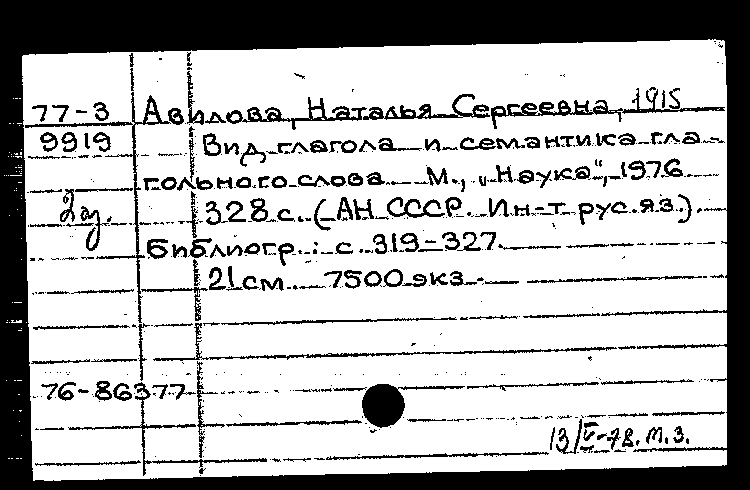 77-3 Авилова, Наталья Сергеевна, 1915
9919 Вид глагола и семантика гла-
гольного слова. М., „Наука“, 1976.
2оз. 328 с. (АН СССР. Ин-т рус. яз.).
Библиогр.: с. 319-327.
21 см. 7500 экз.
76-86377
13/IV-78. М.З.